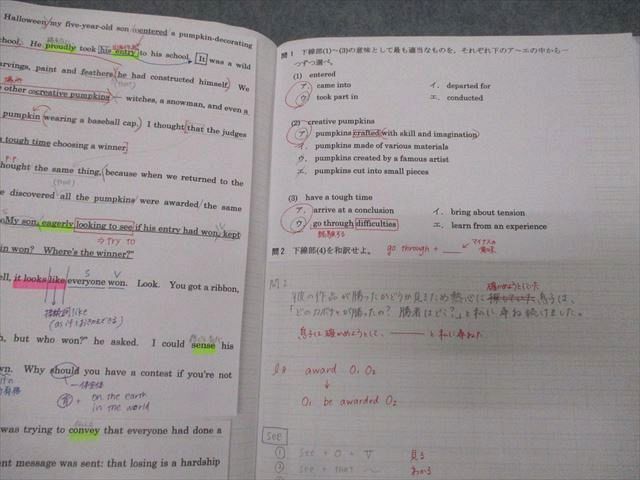 Halloween my five-year-old son entered a pumpkin-decorating
school. He proudly took his entry to his school. It was a wild
carvings, paint and feathers he had constructed himself. We
other creative pumpkins — witches, a snowman, and even a
pumpkin wearing a baseball cap. I thought that the judges
a tough time choosing a winner
thought the same thing, because when we returned to the
discovered all the pumpkins were awarded the same
My son, eagerly looking to see if his entry had won, kept
⇒ try to
in won? Where's the winner?"
S V
it looks like everyone won. Look. You got a ribbon,
接続詞 like
h, but who won?" he asked. I could sense his
Why should you have a contest if you're not
on the earth
in the world
was trying to convey that everyone had done a
message was sent: that losing is a hardship
問1 下線部(1)~(3)の意味として最も適当なものを、それぞれ下のア~エの中から一
つずつ選べ。
(1) entered
ア. came into イ. departed for
ウ. took part in エ. conducted
(2) creative pumpkins
ア. pumpkins crafted with skill and imagination
イ. pumpkins made of various materials
ウ. pumpkins created by a famous artist
エ. pumpkins cut into small pieces
(3) have a tough time
ア. arrive at a conclusion イ. bring about tension
ウ. go through difficulties エ. learn from an experience
経験する
問2 下線部(4)を和訳せよ。 go through + マイナスの意味
問2
確かめようとしていた
彼の作品が勝ったかどうか見るため熱心に 息子は、
「どのカボチャが勝ったの? 勝者はどこ?」と私に尋ね続けました。
息子は確かめようとして、 と私に尋ねた
award O₁ O₂
↓
O₁ be awarded O₂
see
① see + O + V 見る
② see + that ~ わかる